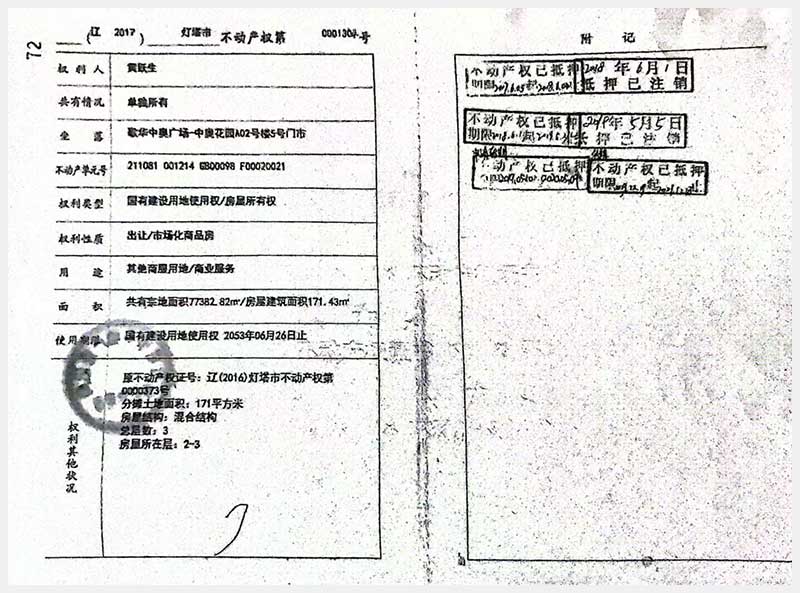 72
(辽 2017) 灯塔市 不动产权第 0001304号
权利人 黄跃生
共有情况 单独所有
坐落 歌华中奥广场-中奥花园A02号楼5号门市
不动产单元号 211081 001214 GB00098 F00020021
权利类型 国有建设用地使用权/房屋所有权
权利性质 出让/市场化商品房
用途 其他商服用地/商业服务
面积 共有宗地面积77382.82㎡/房屋建筑面积171.43㎡
使用期限 国有建设用地使用权 2053年06月26日止
权利其他状况
原不动产权证号：辽(2016)灯塔市不动产权第
0000373号
分摊土地面积：171平方米
房屋结构：混合结构
总层数：3
房屋所在层：2-3
附记
不动产权已抵押 2018年6月1日
期限 抵押已注销
不动产权已抵押 2019年5月5日
期限 抵押已注销
不动产权已抵押 不动产权已抵押
期限